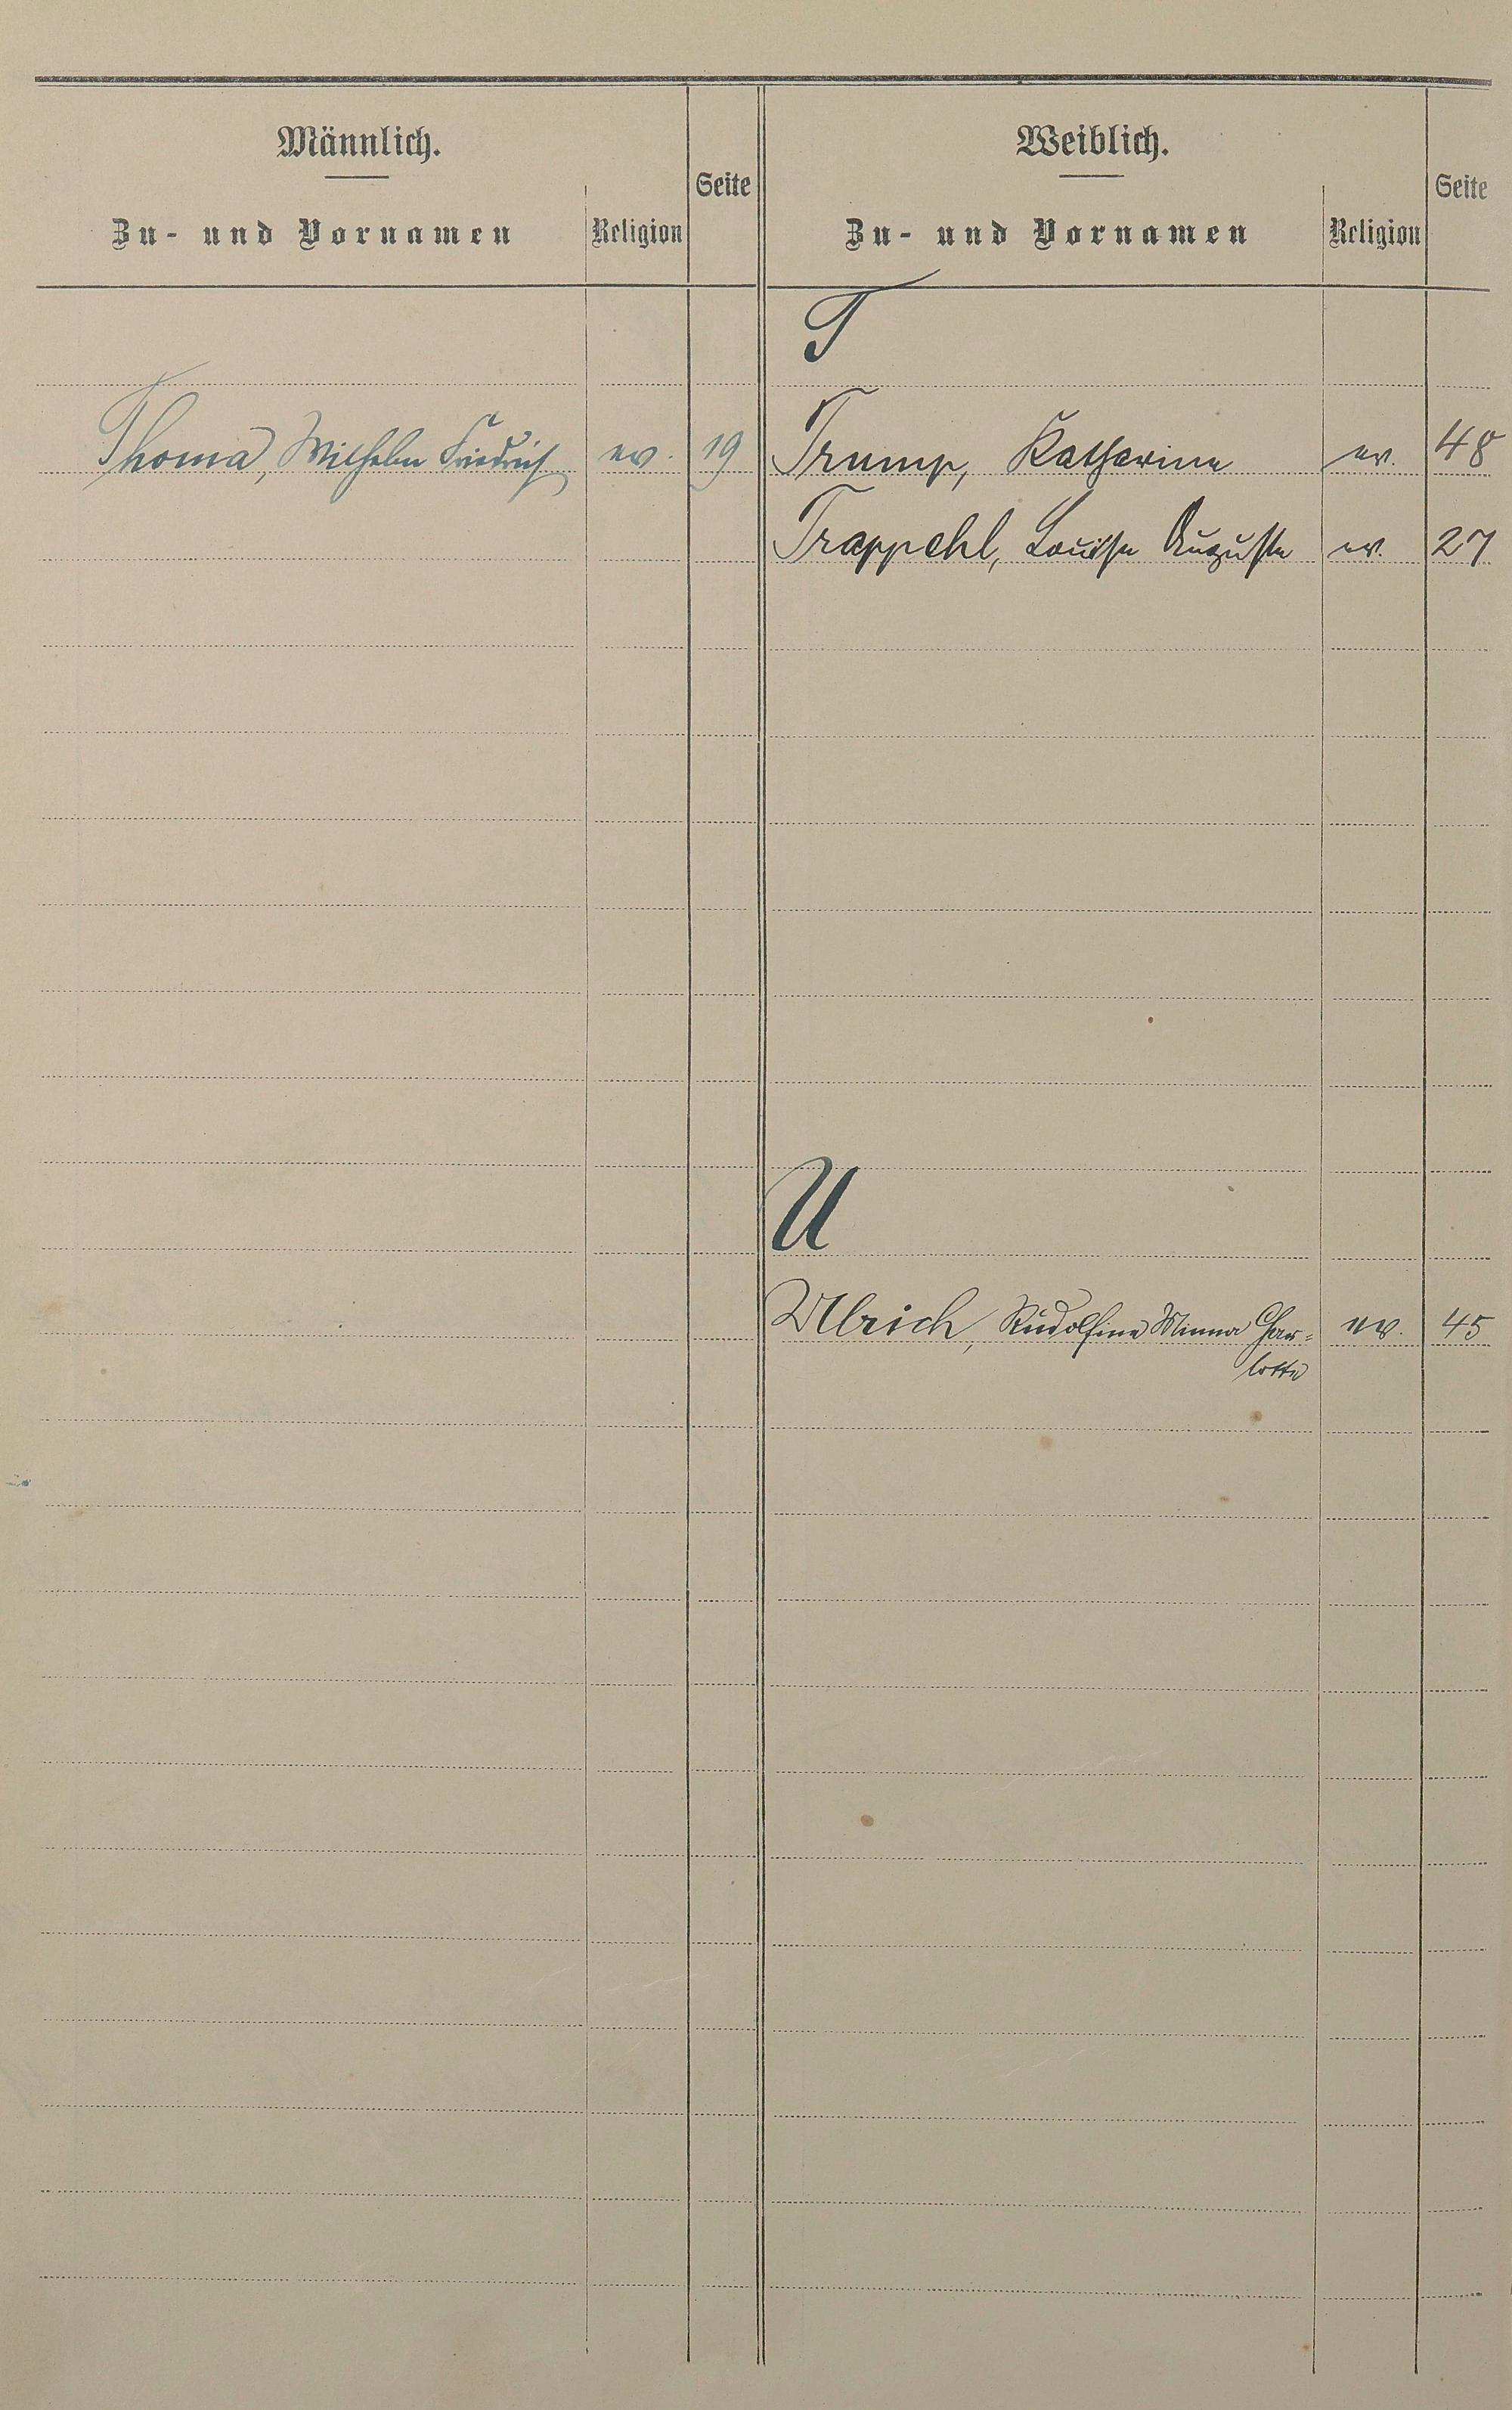 Männlich.
Zu- und Vornamen
Religion
Seite
Weiblich.
Zu- und Vornamen
Religion
Seite
T
Thoma, Wilhelm Friedrich ev. 19
Trump, Katharina ev. 48
Trappehl, Louise Auguste ev. 27
U
Ulrich, Rudolfine Minna Char= ev. 45
lotte